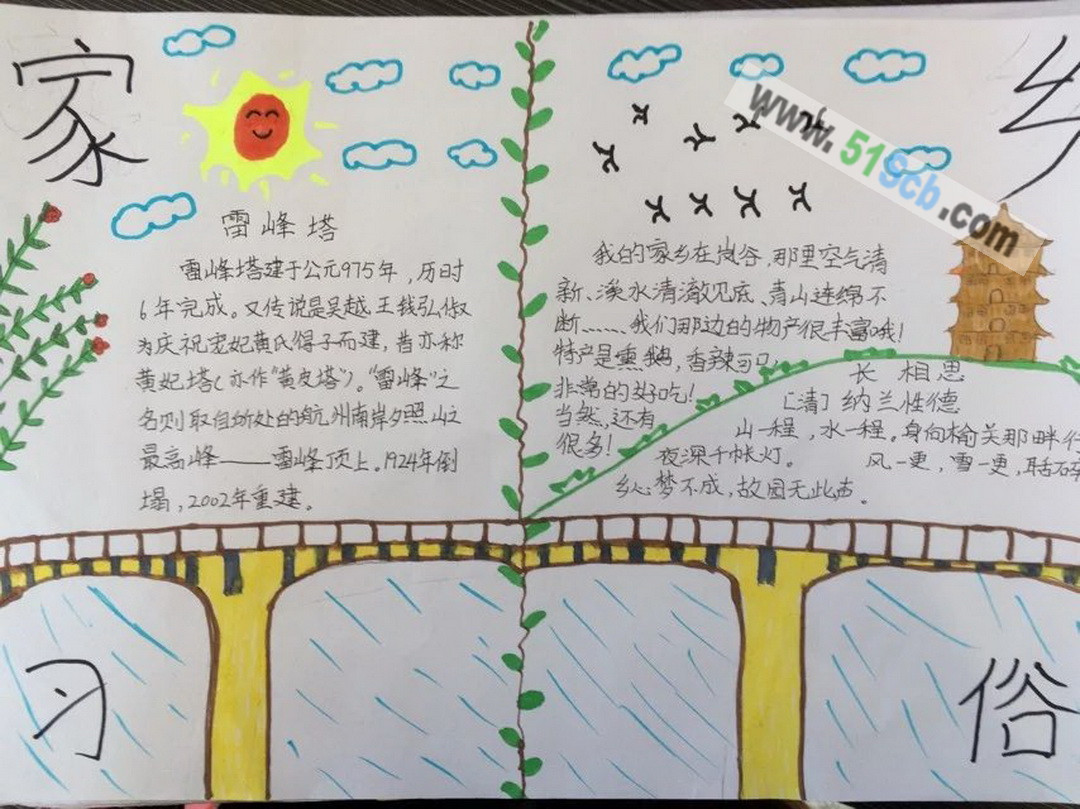 家
乡
www.51Scb.com
雷峰塔
雷峰塔建于公元975年，历时
6年完成。又传说是吴越王钱弘俶
为庆祝宠妃黄氏得子而建，昔亦称
黄妃塔（亦作“黄皮塔”）。“雷峰”之
名则取自所处的杭州南岸夕照山之
最高峰——雷峰顶上。1924年倒
塌，2002年重建。
我的家乡在岚谷，那里空气清
新、溪水清澈见底、青山连绵不
断……我们那边的物产很丰富哦！
特产是熏鹅，香辣可口，
非常的好吃！
当然，还有
很多！
长相思
［清］纳兰性德
山一程，水一程。身向榆关那畔行
夜深千帐灯。
风一更，雪一更，聒碎
乡心梦不成，故园无此声。
习
俗